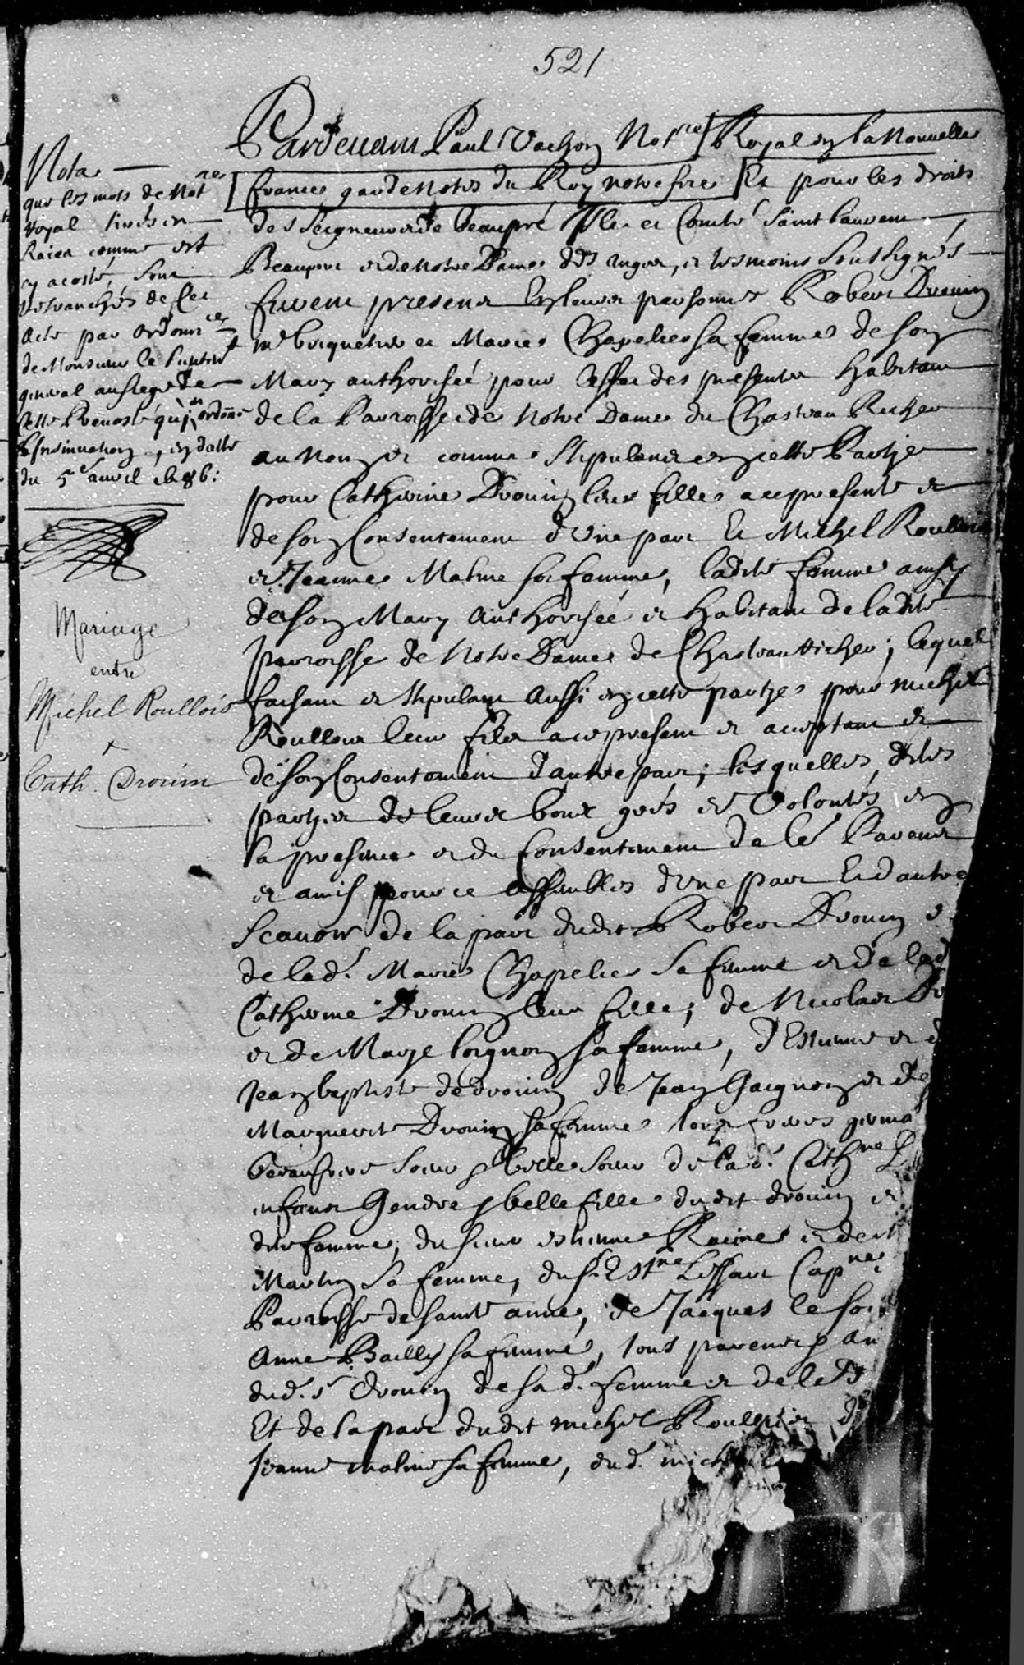 521
Nota
que les mots de Not.res
Royal tirés en
Raiea comme est
cy acosté, sont
retranchés de Cet
acte par ordonn.ces
de Monsieur le lieuten.t
general au siege de
cette Prevosté qui en ordonne
l'Insinuation, en datte
du 5e auvril 1686:
Mariage
entre
Michel Roullois
+
Cath. Drouin
Pardevant Paul Vachon Not.re Royal en la Nouvelle
france gardenotes du Roy notre sire Et pour les droits
des seigneuries de beaupré Isle et Comté saint laurens,
Beauport et de Notre Dame des anges, et tesmoins soubsignés
furent present en leurs personnes Robert Drouin
m.e briquetier et Marie Chapelier sa femme de son
Mary authorisée pour l'effet des presentes habitans
de la Parroisse de Notre Dame du Chasteau Richer
au Nom et comme stipulant en cette Partye
pour Catherine Drouin leur fille a ce presente et
de son Consentement d'Une part Et Michel Roullois
et Jeanne Maline sa femme, ladite femme aussy
de son Mary authorisée et habitans de ladite
parroisse de Notre Dame de Chasteau Richer; lequel
faisant et stipulant aussi en cette partye pour michel
Roullois leur fils a ce present et acceptant et
de son Consentement d'autre part; lesquelles dites
partyes de leurs bons grés et Volontés en
la presence et du Consentement de les Parens
et amis pour ce assemblés d'une part Et d'autre
scauoir de la part dudit Robert Drouin et
de lad. Marie Chapelier sa femme et de lad
Catherine Drouin leur fille; de Nicolas
et de Marye loignon sa femme, d'Estienne et
Jean baptiste de drouin de Jean Gaignon et de
Marguerite Drouin sa femme leurs freres germa
beaufrere soeur et belle soeur de la d. Cath.ne
enfans Gendre et belle fille dudit drouin et
de sa femme, du sieur estienne Racine et de
Martin sa femme, du s. Est.ne Lessart Cap.ne
Parroisse de sainte anne, de Jacques le
Anne Bailly sa femme, tous parens et am
dud. s.r drouin de sa d. femme et de le
Et de la part dudit michel Roullois et
Jeanne maline sa femme, dud. michel